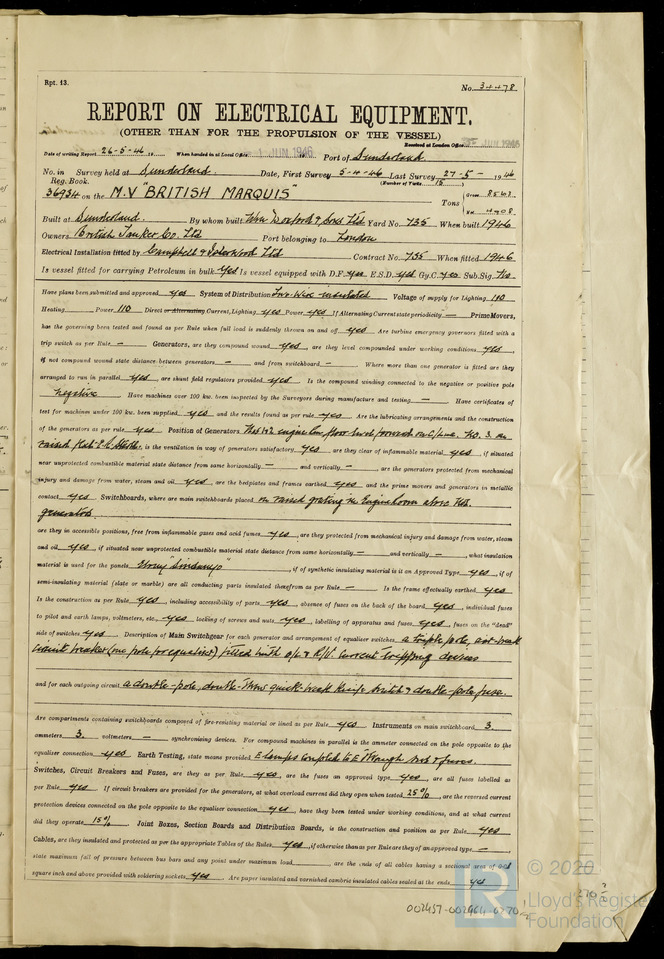 Rpt. 13.
No. 34478
REPORT ON ELECTRICAL EQUIPMENT.
(OTHER THAN FOR THE PROPULSION OF THE VESSEL)
Received at London Office JUN 1946
Date of writing Report 26-5-46 19 When handed in at Local Office 1 JUN 1946 19 Port of Sunderland
No. in Survey held at Sunderland. Date, First Survey 5-4-46 Last Survey 27-5- 1946
Reg. Book. (Number of Visits 15)
36934 on the M.V "BRITISH MARQUIS" Tons Gross 8563
Net 4908
Built at Sunderland. By whom built Wm Doxford & Sons Ltd Yard No. 735 When built 1946
Owners British Tanker Co. Ltd Port belonging to London
Electrical Installation fitted by Campbell & Isherwood Ltd Contract No. 735 When fitted 1946
Is vessel fitted for carrying Petroleum in bulk yes Is vessel equipped with D.F. yes E.S.D. yes Gy.C. yes Sub.Sig. No
Have plans been submitted and approved yes System of Distribution Two-Wire insulated Voltage of supply for Lighting 110
Heating Power 110 Direct or Alternating Current, Lighting yes Power yes If Alternating Current state periodicity — Prime Movers,
has the governing been tested and found as per Rule when full load is suddenly thrown on and off yes Are turbine emergency governors fitted with a
trip switch as per Rule — Generators, are they compound wound yes, are they level compounded under working conditions yes,
if not compound wound state distance between generators — and from switchboard — Where more than one generator is fitted are they
arranged to run in parallel yes, are shunt field regulators provided yes Is the compound winding connected to the negative or positive pole
negative Have machines over 100 kw. been inspected by the Surveyors during manufacture and testing — Have certificates of
test for machines under 100 kw. been supplied yes and the results found as per rule yes Are the lubricating arrangements and the construction
of the generators as per rule yes Position of Generators Nos 1&2 engine room floor level forward on C/line. No. 3. on
raised flat, is the ventilation in way of generators satisfactory yes are they clear of inflammable material yes, if situated
near unprotected combustible material state distance from same horizontally — and vertically —, are the generators protected from mechanical
injury and damage from water, steam and oil yes, are the bedplates and frames earthed yes and the prime movers and generators in metallic
contact yes Switchboards, where are main switchboards placed on raised grating in Engineroom above No.
generators
are they in accessible positions, free from inflammable gases and acid fumes yes, are they protected from mechanical injury and damage from water, steam
and oil yes, if situated near unprotected combustible material state distance from same horizontally — and vertically —, what insulation
material is used for the panels Ebony "Sindanyo", if of synthetic insulating material is it an Approved Type yes, if of
semi-insulating material (slate or marble) are all conducting parts insulated therefrom as per Rule — Is the frame effectually earthed yes
Is the construction as per Rule yes, including accessibility of parts yes, absence of fuses on the back of the board yes, individual fuses
to pilot and earth lamps, voltmeters, etc. yes locking of screws and nuts yes, labelling of apparatus and fuses yes, fuses on the "dead"
side of switches yes. Description of Main Switchgear for each generator and arrangement of equaliser switches a triple pole, air-break
circuit breaker (one pole for equaliser) fitted with o/l & R/C Current tripping devices
and for each outgoing circuit a double-pole, double-throw quick-break knife switch & double-pole fuse.
Are compartments containing switchboards composed of fire-resisting material or lined as per Rule yes Instruments on main switchboard 3.
ammeters 3. voltmeters — synchronising devices. For compound machines in parallel is the ammeter connected on the pole opposite to the
equaliser connection yes Earth Testing, state means provided E lamps coupled to E through switch & fuses.
Switches, Circuit Breakers and Fuses, are they as per Rule yes, are the fuses an approved type yes, are all fuses labelled as
per Rule yes If circuit breakers are provided for the generators, at what overload current did they open when tested 25%, are the reversed current
protection devices connected on the pole opposite to the equaliser connection yes, have they been tested under working conditions, and at what current
did they operate 15% Joint Boxes, Section Boards and Distribution Boards, is the construction and position as per Rule yes
Cables, are they insulated and protected as per the appropriate Tables of the Rules yes, if otherwise than as per Rule are they of an approved type —
state maximum fall of pressure between bus bars and any point under maximum load, are the ends of all cables having a sectional area of 0.01
square inch and above provided with soldering sockets yes. Are paper insulated and varnished cambric insulated cables sealed at the ends yes
© 2020
Lloyd's Register
Foundation
002457-002964-0270 1/2